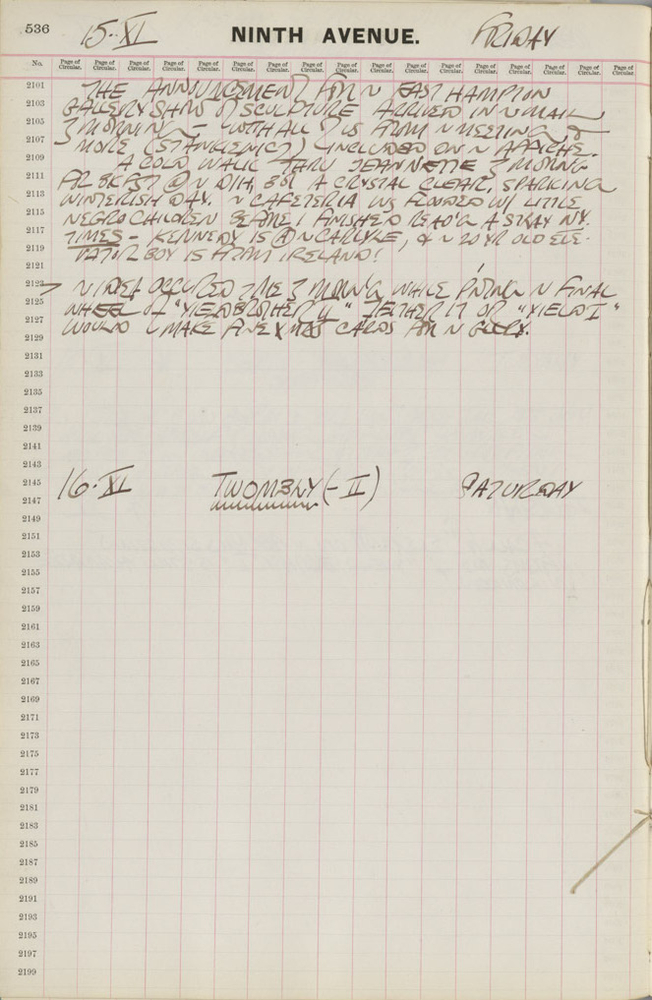 536 15·XI NINTH AVENUE. FRIDAY
No. Page of Circular. Page of Circular. Page of Circular. Page of Circular. Page of Circular. Page of Circular. Page of Circular. Page of Circular. Page of Circular. Page of Circular. Page of Circular. Page of Circular. Page of Circular. Page of Circular. Page of Circular. Page of Circular.
2101 THE ANNOUNCEMENT FOR EAST HAMPTON
2103 GALLERY SHOW of SCULPTURE ARRIVED IN MAIL
2105 MORNING – WITH ALL FROM
2107 MORE (STANKIEWICZ) INCLUDED ON AFFICHE.
2109 A COLD WALK THRU JEANNETTE MORNG
2111 FR BKFST @ A CRYSTAL CLEAR, SPARKLING
2113 WINTERISH DAY. CAFETERIA WS FLOODED W/ LITTLE
2115 NEGRO CHILDREN BEFORE I FINISHED READ'G A STRAY NY.
2117 TIMES – KENNEDY IS @ CARLYLE, & 20 YR OLD ELE-
2119 VATOR BOY IS FROM IRELAND!
2121
2123 IDEA OCCURED 2 ME MORN'G WHILE FINAL
2125 WHEEL of "YIELD BROTHER II" EITHER IT OR "YIELD I"
2127 WOULD MAKE FINE XMAS CARDS FOR
2129
2131
2133
2135
2137
2139
2141
2143
2145 16·XI TWOMBLY (-II) SATURDAY
2147
2149
2151
2153
2155
2157
2159
2161
2163
2165
2167
2169
2171
2173
2175
2177
2179
2181
2183
2185
2187
2189
2191
2193
2195
2197
2199